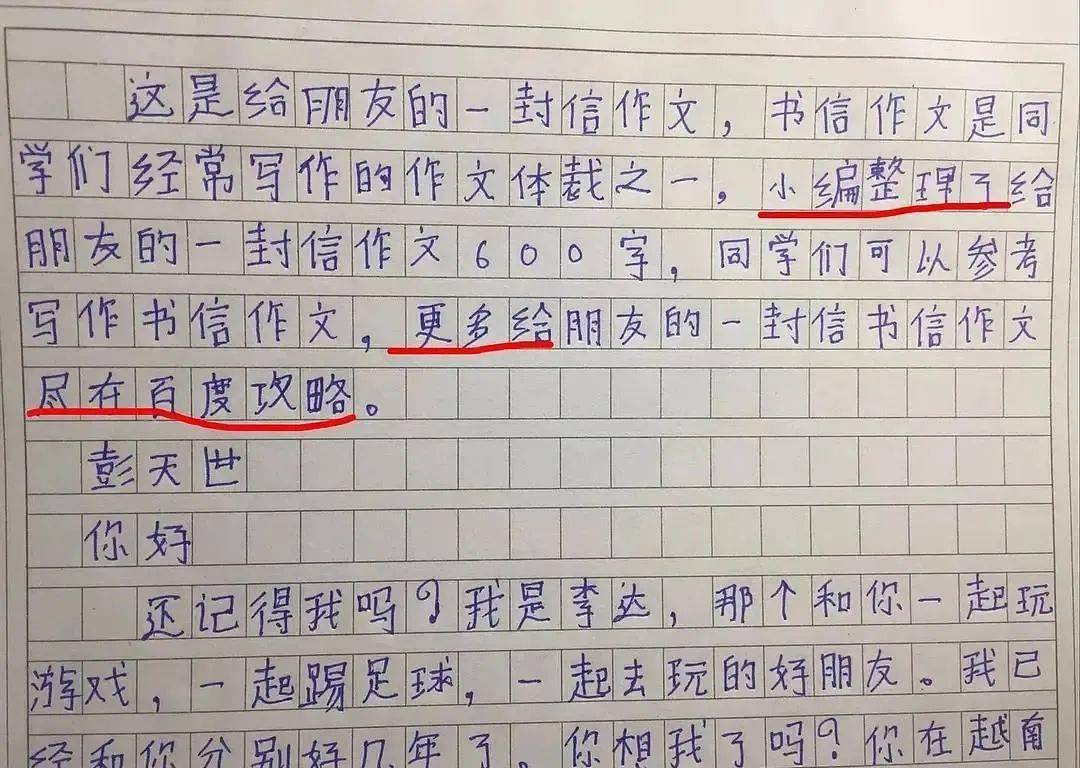 这是给朋友的一封信作文，书信作文是同
学们经常写作的作文体裁之一，小编整理了给
朋友的一封信作文600字，同学们可以参考
写作书信作文，更多给朋友的一封信书信作文
尽在百度攻略。
彭天世
你好
还记得我吗？我是李达，那个和你一起玩
游戏，一起踢足球，一起去玩的好朋友。我已
经和你分别好几年了。你想我了吗？你在越南